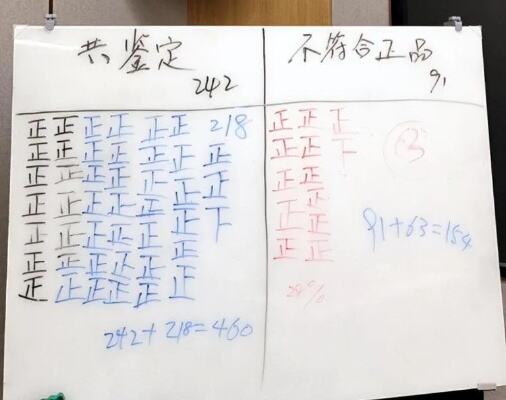 共鉴定
242
不符合正品
91
正正正正正正 218
正正正正正正正
正正正正正正正
正正正正正正下
正正正正正正
正正正正正正
正正正正正正
242+218=460
正正正
正正下
正正
正正
正正
正正
63
91+63=154